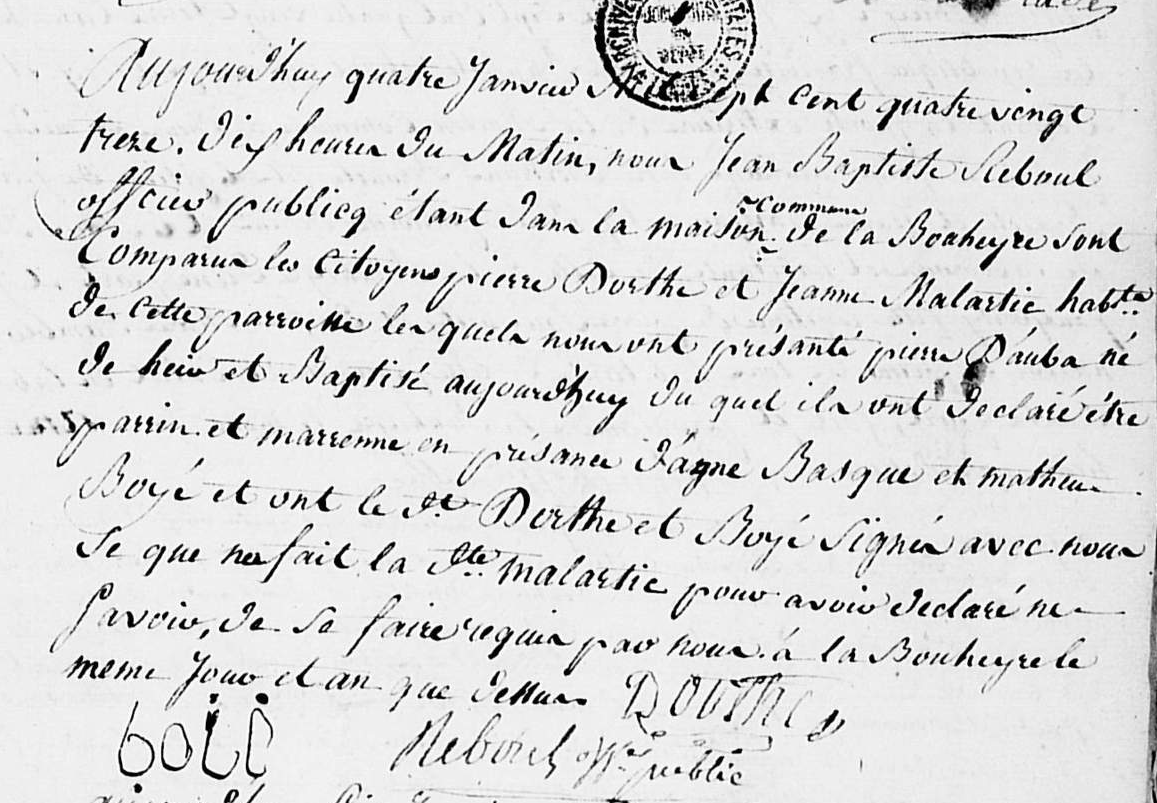 Aujourd'huy quatre Janvier Mil sept cent quatre vingt
treze. dix heures du Matin, nous Jean Baptiste Reboul
officier publicq étant dans la maison commune de la Bouheyre sont
Comparus les citoyens pierre Dorthe et Jeanne Malartic habts
de cette parroisse les quels nous ont présanté pierre Dauba né
de heir et Baptisé aujourd'huy du quel ils ont declaré être
parrin et marrenne en présance d'azne Basque et matheu
Boyé et ont le dt Dorthe et Boyé Signés avec nous
Se que na fait la dte malartic pour avoir declaré ne
Savoir, de Se faire requis par nous à la Bouheyre le
meme Jour et an que dessus DORTHE
BOIE Reboul offier public